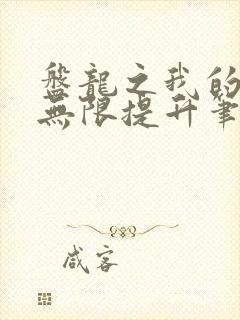 盤龍之我的
無限提升筆
咸客